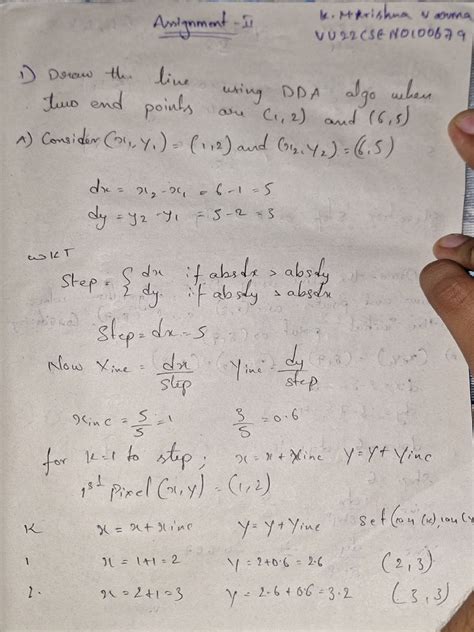 Assignment - II
K. Hkrishna Varma
VU22CSEN0100679
1) Draw the line using DDA algo when
two end points are (1,2) and (6,5)
A) Consider (x1, y1) = (1,2) and (x2, y2) = (6,5)
dx = x2 - x1 = 6-1 = 5
dy = y2 - y1 = 5-2 = 3
WKT
Step = { dx if absdx > absdy
{ dy. if absdy > absdx
Step = dx = 5
Now Xinc = dx/step Yinc = dy/step
xinc = 5/5 = 1 3/5 = 0.6
for K=1 to step; x = x + Xinc Y = Y + Yinc
1st pixel (x,y) = (1,2)
K x = x + xinc Y = Y + Yinc
1 x = 1+1 = 2 Y = 2+0.6 = 2.6 (2,3)
2. x = 2+1 = 3 Y = 2.6+0.6 = 3.2 (3,3)